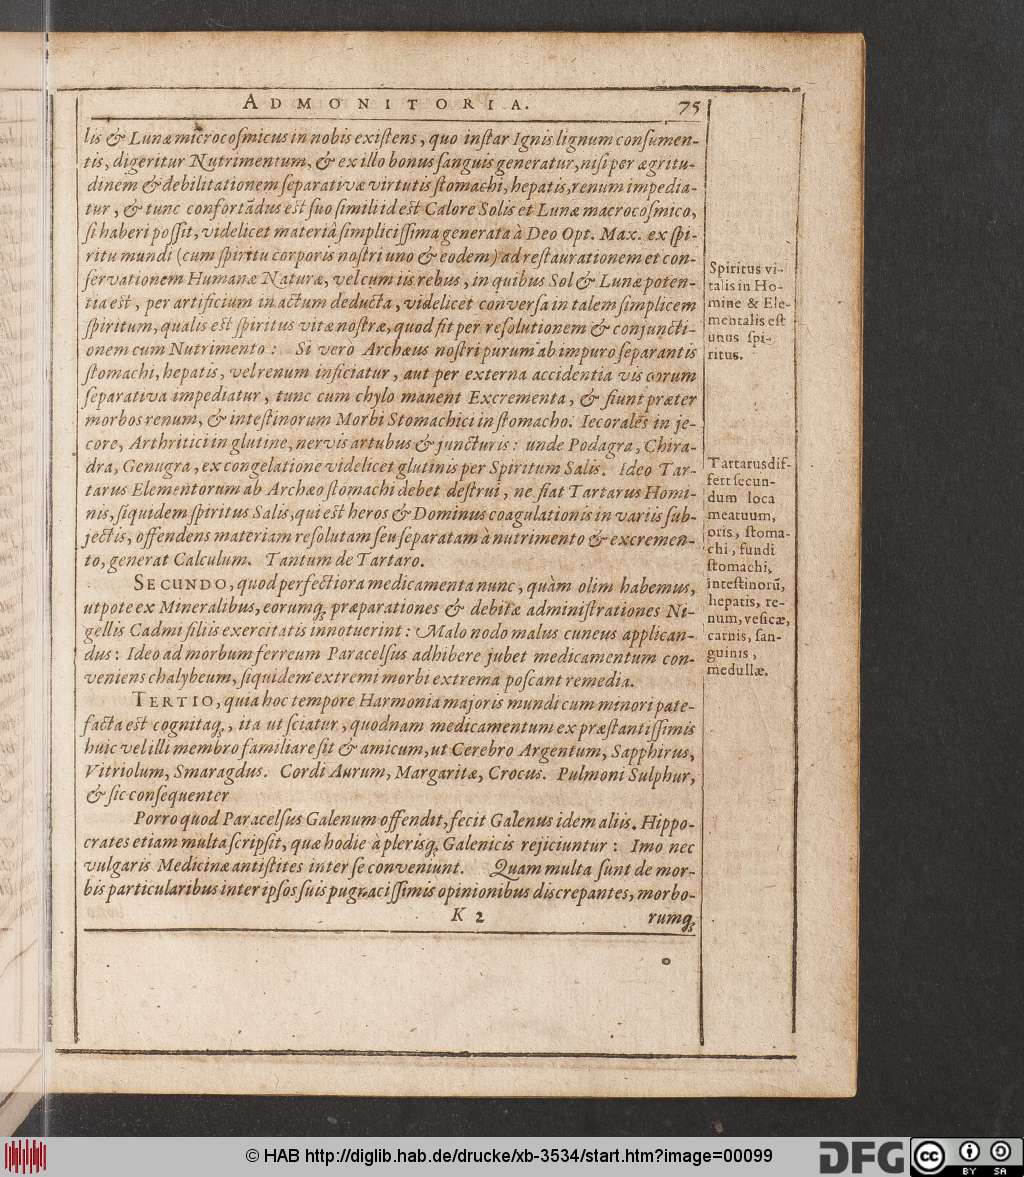 ADMONITORIA. 75
lis & Lunæ microcoſmicus in nobis exiſtens, quo inſtar Ignis lignum conſumen-
tis, digeritur Nutrimentum, & ex illo bonus ſanguis generatur, niſi per ægritu-
dinem & debilitationem ſeparativæ virtutis ſtomachi, hepatis, renum impedia-
tur, & tunc confortādus eſt ſuo ſimili id eſt Calore Solis et Lunæ macrocoſmico,
ſi haberi poſſit, videlicet materià ſimpliciſſima generata à Deo Opt. Max. ex ſpi-
ritu mundi (cum ſpiritu corporis noſtri uno & eodem) ad reſtaurationem et con-
ſervationem Humanæ Naturæ, vel cum iis rebus, in quibus Sol & Luna poten-
tia eſt, per artificium in actum deducta, videlicet converſa in talem ſimplicem
ſpiritum, qualis eſt ſpiritus vitæ noſtræ, quod fit per reſolutionem & conjuncti-
onem cum Nutrimento: Si vero Archæus noſtri purum ab impuro ſeparantis
ſtomachi, hepatis, vel renum inficiatur, aut per externa accidentia vis eorum
ſeparativa impediatur, tunc cum chylo manent Excrementa, & fiunt præter
morbos renum, & inteſtinorum Morbi Stomachici in ſtomacho. Iecorales in je-
core, Arthritici in glutine, nervis artubus & juncturis: unde Podagra, Chira-
dra, Genugra, ex congelatione videlicet glutinis per Spiritum Salis. Ideo Tar-
tarus Elementorum ab Archæo ſtomachi debet deſtrui, ne fiat Tartarus Homi-
nis, ſiquidem ſpiritus Salis, qui eſt heros & Dominus coagulationis in variis ſub-
jectis, offendens materiam reſolutam ſeu ſeparatam à nutrimento & excremen-
to, generat Calculum. Tantum de Tartaro.
SECUNDO, quod perfectiora medicamenta nunc, quàm olim habemus,
utpote ex Mineralibus, eorumq́; præparationes & debitæ adminiſtrationes Ni-
gellis Cadmi filiis exercitatis innotuerint: Malo nodo malus cuneus applican-
dus: Ideo ad morbum ferreum Paracelſus adhibere jubet medicamentum con-
veniens chalybeum, ſiquidem extremi morbi extrema poſcant remedia.
TERTIO, quia hoc tempore Harmonia majoris mundi cum minori pate-
facta eſt cognitaq́;, ita ut ſciatur, quodnam medicamentum ex præſtantiſſimis
huic vel illi membro familiare ſit & amicum, ut Cerebro Argentum, Sapphirus,
Vitriolum, Smaragdus. Cordi Aurum, Margaritæ, Crocus. Pulmoni Sulphur,
& ſic conſequenter
Porro quod Paracelſus Galenum offendit, fecit Galenus idem aliis. Hippo-
crates etiam multa ſcripſit, quæ hodie à pleriſq́; Galenicis rejiciuntur: Imo nec
vulgaris Medicinæ antiſtites inter ſe conveniunt. Quam multa ſunt de mor-
bis particularibus inter ipſos ſuis pugnaciſſimis opinionibus diſcrepantes, morbo-
K 2 rumq́;
Spiritus vi-
talis in Ho-
mine & Ele-
mentalis eſt
unus ſpi-
ritus.
Tartarus dif-
fert ſecun-
dum loca
meatuum,
oris, ſtoma-
chi, fundi
ſtomachi,
inteſtinorū,
hepatis, re-
num, veſicæ,
carnis, ſan-
guinis,
medullæ.
© HAB http://diglib.hab.de/drucke/xb-3534/start.htm?image=00099
DFG
cc BY SA